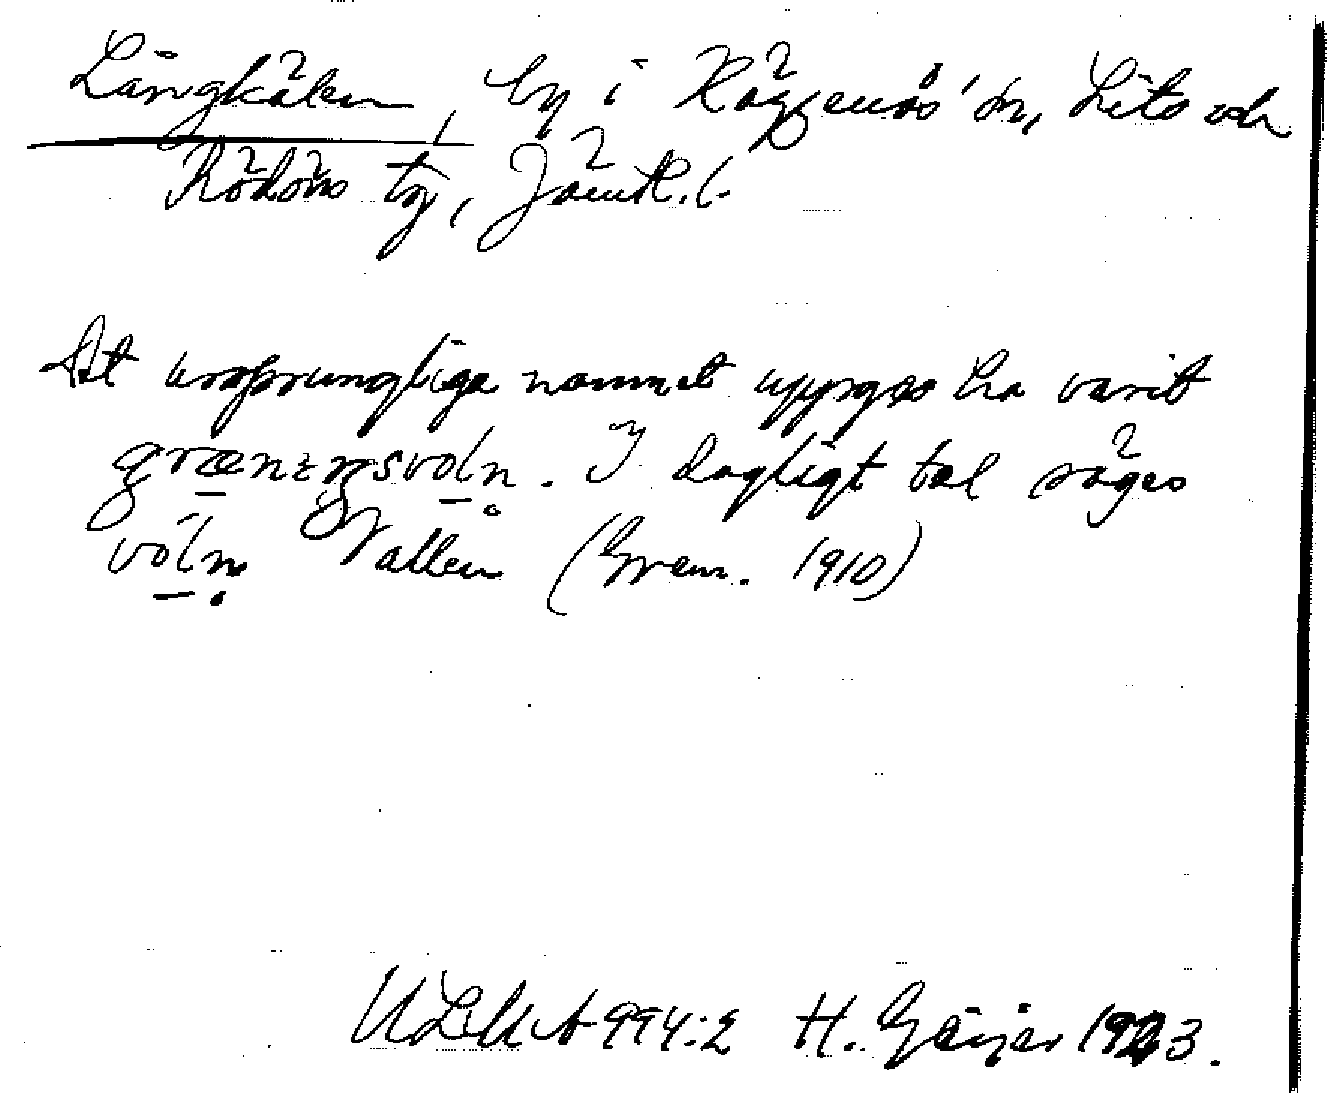 Långkälen, by i Häggenås' sn, Lits och
Rödöns tg, Jämtl. l.
Det ursprungliga namnet uppges ha varit
grænɪŋsvoln. I dagligt tal säges
voln Vallen (Grem. 1910)
ULMA 994:2 H. Geijer 1923.